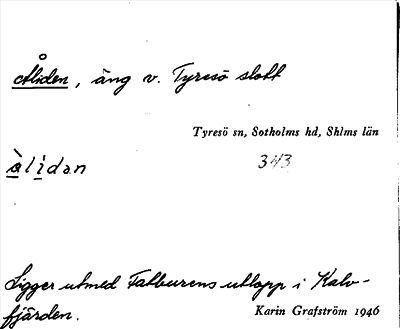 Åliden, äng v. Tyresö slott
Tyresö sn, Sotholms hd, Shlms län
343
ὰlìdən
Ligger utmed Fatburens utlopp i Kalv-
fjärden.
Karin Grafström 1946